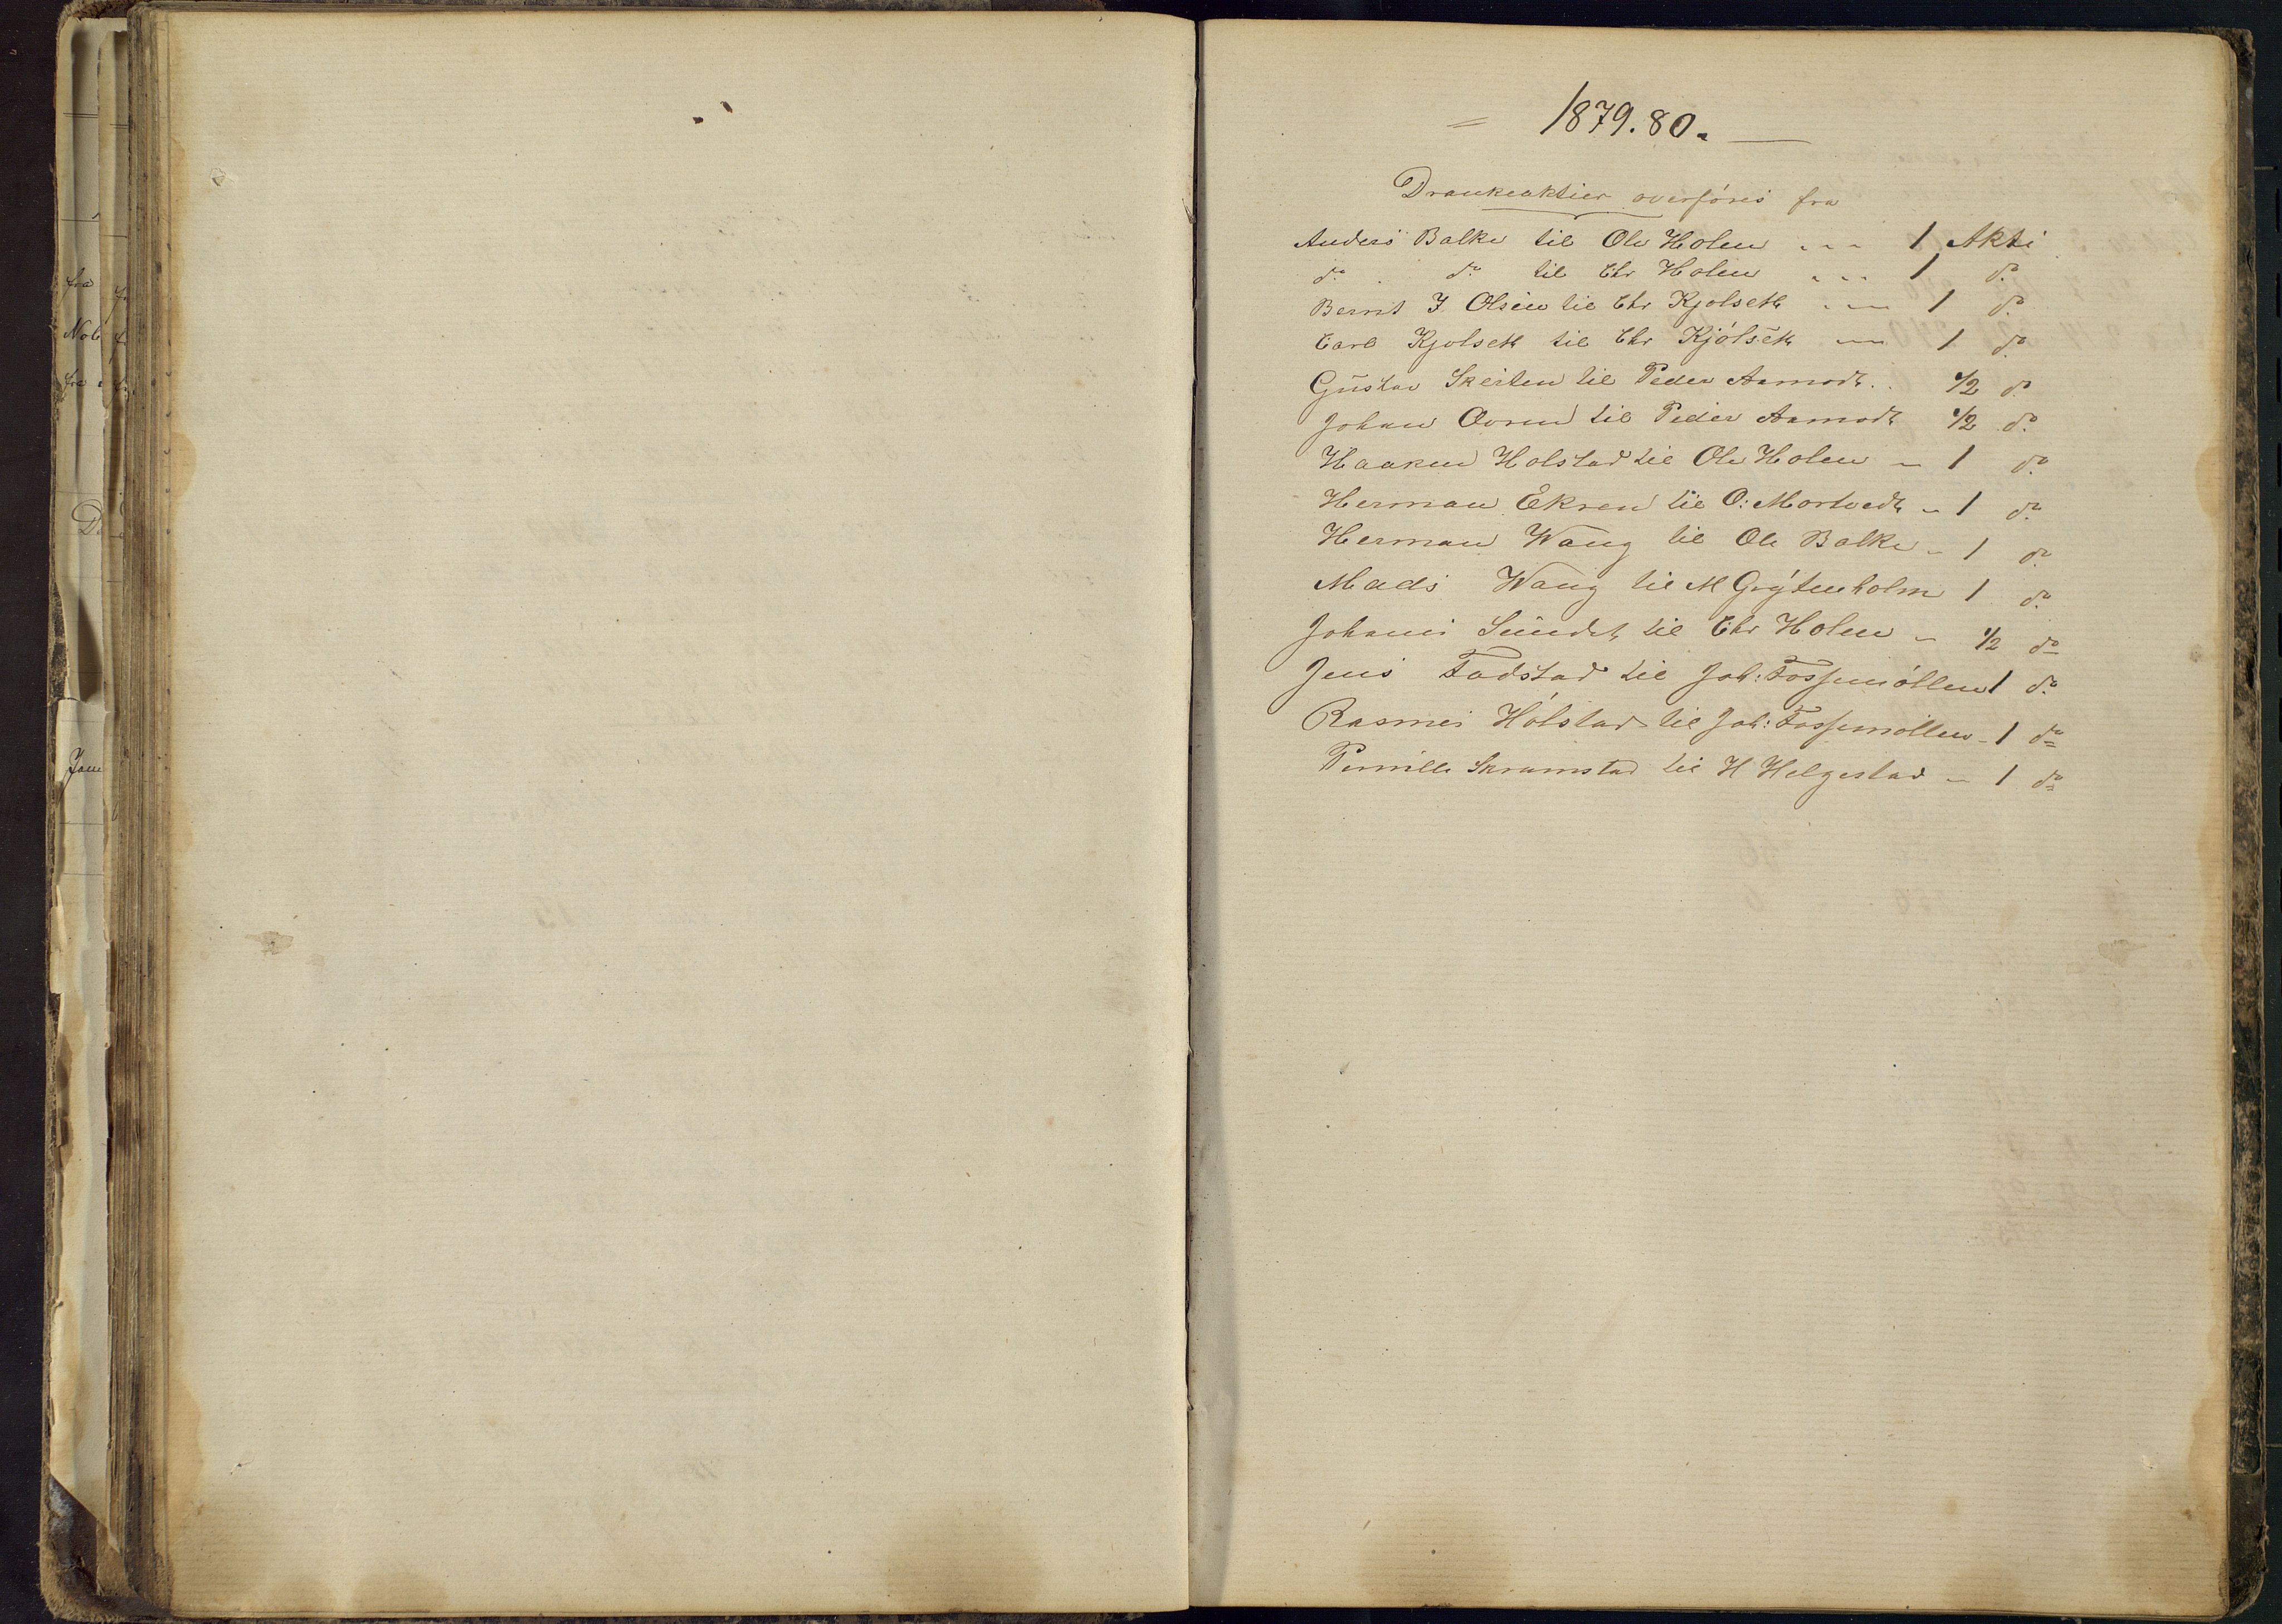 fra
Nob
fra
D
Jam
= 1879.80. —
Drankeaktier overføres fra
Anders Balke til Ole Holen - - - 1 Aktie
do. do til Chr Holen - - - 1 do
Bernt J. Olsen til Chr Kjölseth - - - 1 do
Carl Kjölseth til Chr Kjölseth - - 1 do
Gustav Skeiten til Peder Aamodt . . 1/2 do
Johan Ovren til Peder Aamodt 1/2 do.
Haaken Holstad til Ole Holen - 1 do
Herman Ekren til O: Mortvedt - 1 do
Herman Wang til Ole Balke - 1 do
Mads Wang til M Grytenholm 1 do
Johannes Sundet til Chr Holen - 1/2 do
Jens Fadstad til Joh: Fossemöllen 1 do
Rasmus Hólstad til Joh: Fossemöllen - 1 do
Pernille Skramstad til H Helgestad - 1 do